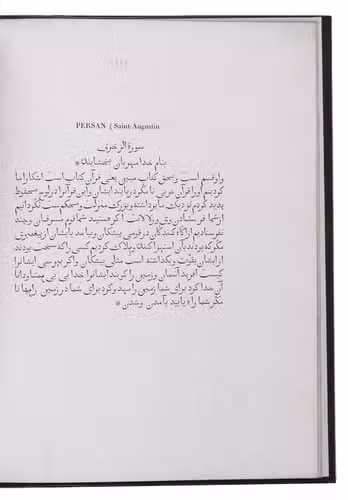 PERSAN ( Saint-Augustin
سورة الزخرف
بنام خدا مهربان بخشاینده *
واو قسم است وبحق کتاب مبین یعنی قرآن کتاب است اشکارا ما
کردیم اورا قرآن عربی تا مگر دریابید ایشان واین قرآنرا در لوح محفوظ
پدید کردم نزدیک ما برداشته وبزرک منزلت ومحکم است نگردانیم
ازشما فرستادن وی وزلالات اکر هستید شما قوم مسرفان وچند
نفرستادیم از اکاه کنندکان در قومی پیشکان ونیامد بایشان از پیغمبری
مکر که بودند بآن استهزا کنند وهلاکت کردیم کسی را که سخت بودند
از ایشان بقوت وبکذاشته است مثل پیشکان واکر بپرسی ایشانرا
کیست آفرید آسمان وزمین را کویند ایشانرا خدا بی همتا ودانا
آن خدا کرد برای شما زمین را مهد وکرد برای شما در زمین راهها تا
مکر شما راه یابید بآمدن وشدن *